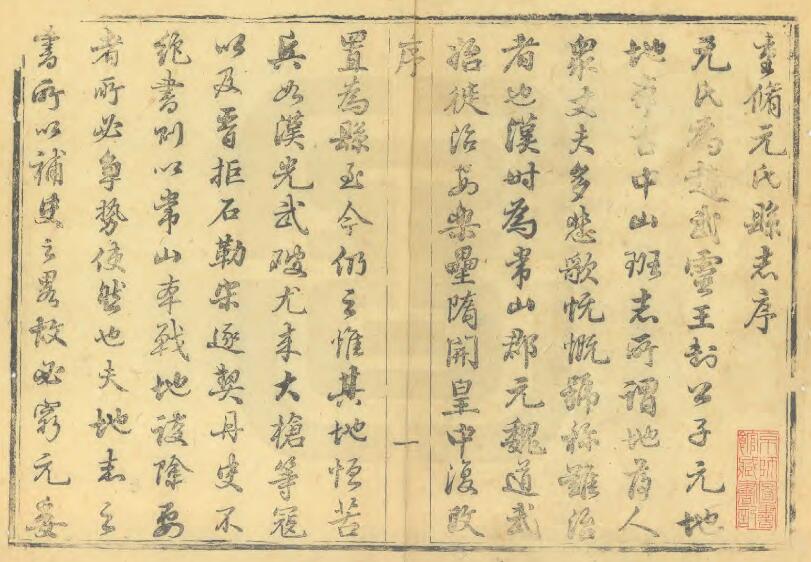 重脩元氏縣志序
元氏爲趙武靈王封公子元地
地亦古中山班志所謂地薄人
衆丈夫多悲歌忼慨號稱難治
者也漢時爲常山郡元魏道武
始徙治安樂壘隋開皇中復改
序
一
置為縣至今仍之惟其地恒苦
兵如漢光武破尤来大槍等冦
以及晋拒石勒宋逐契丹史不
絶書則以常山車戰地護除要
者所必争勢使然也夫地志之
書所以補史之畧故必窮元委